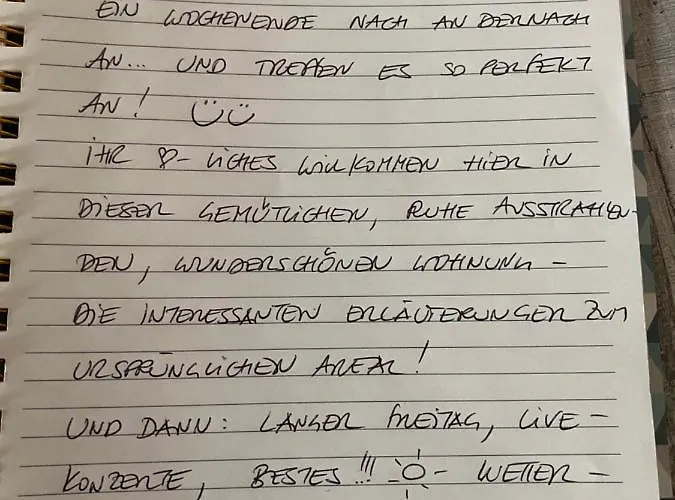 EIN WOCHENENDE NACH ANDERNACH
AN... UND TREFFEN ES SO PERFEKT
AN! ☺☺
IHR ♡-LICHES WILLKOMMEN HIER IN
DIESER GEMÜTLICHEN, RUHE AUSSTRAHLEN-
DEN, WUNDERSCHÖNEN WOHNUNG –
DIE INTERESSANTEN ERLÄUTERUNGEN ZUM
URSPRÜNGLICHEN AREAL!
UND DANN: LANGER FREITAG, LIVE-
KONZERTE, BESTES !!! ☼- WETTER –